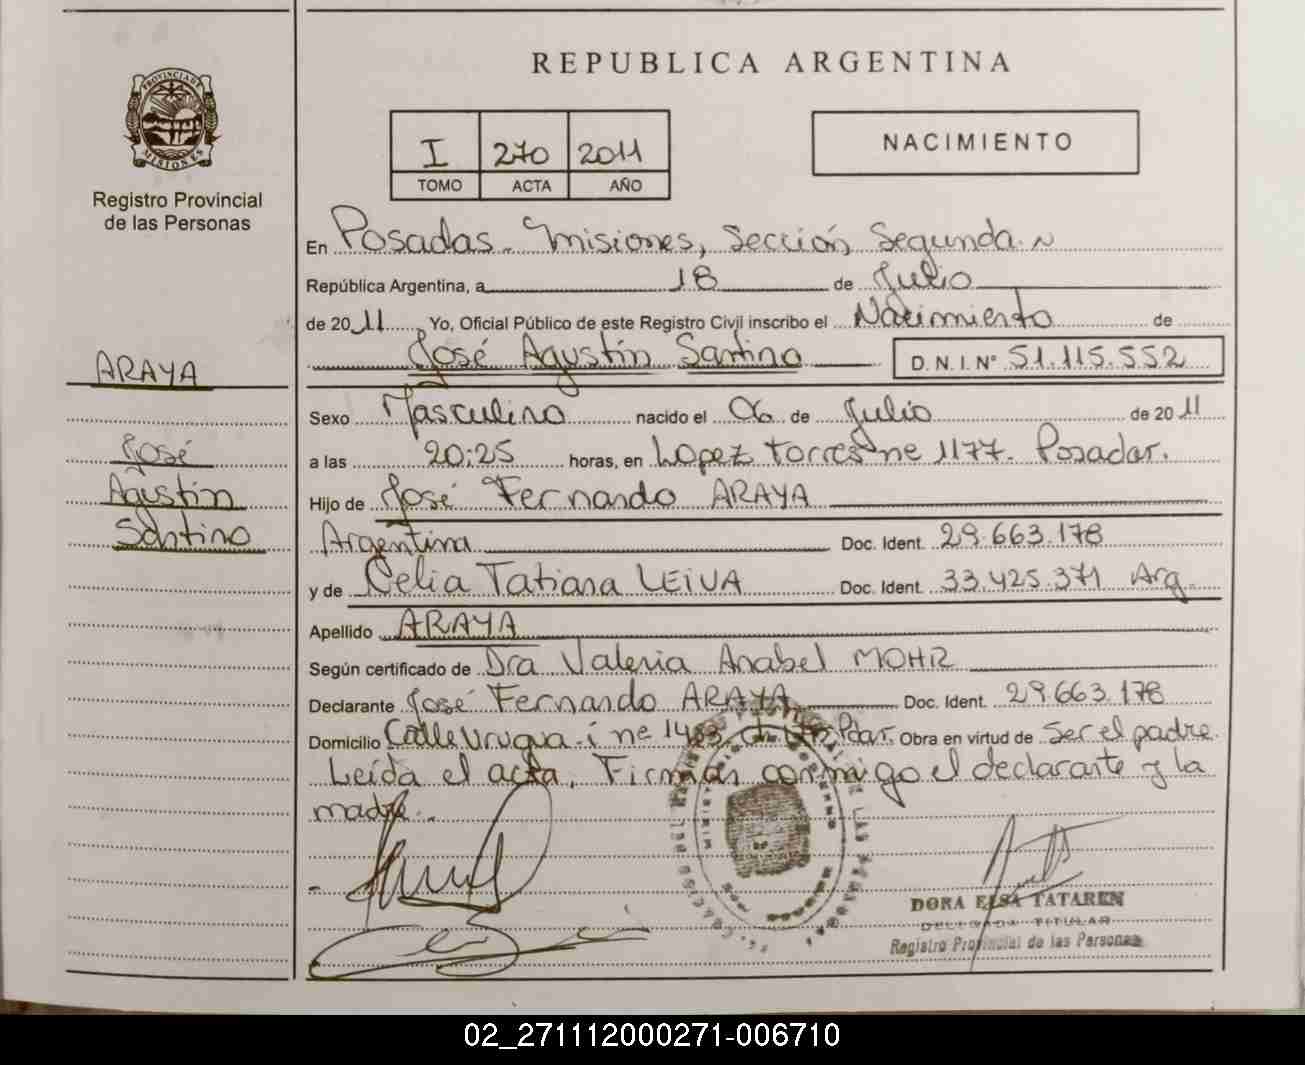 REPUBLICA ARGENTINA
PROVINCIA DE
MISIONES
Registro Provincial
de las Personas
I 270 2011
TOMO ACTA AÑO
NACIMIENTO
En Posadas - Misiones, Sección Segunda.
República Argentina, a 18 de Julio
de 2011 Yo, Oficial Público de este Registro Civil inscribo el Nacimiento de
José Agustín Santino D.N.I.Nº 51.115.552
ARAYA
José
Agustín
Santino
Sexo Masculino nacido el 06 de Julio de 2011
a las 20:25 horas, en Lopez torres ne 1177. Posadas.
Hijo de José Fernando ARAYA
Argentina Doc. Ident. 29.663.178
y de Celia Tatiana LEIVA Doc. Ident. 33.425.371 Arg.
Apellido ARAYA
Según certificado de Dra Valeria Anabel MOHR
Declarante José Fernando ARAYA Doc. Ident. 29.663.178
Domicilio Calle Uruguay ne Pdas. Obra en virtud de Ser el padre.
Leída el acta, Firman conmigo el declarante y la
madre.
DORA ELSA TATAREN
DELEGADA TITULAR
Registro Provincial de las Personas
02_271112000271-006710